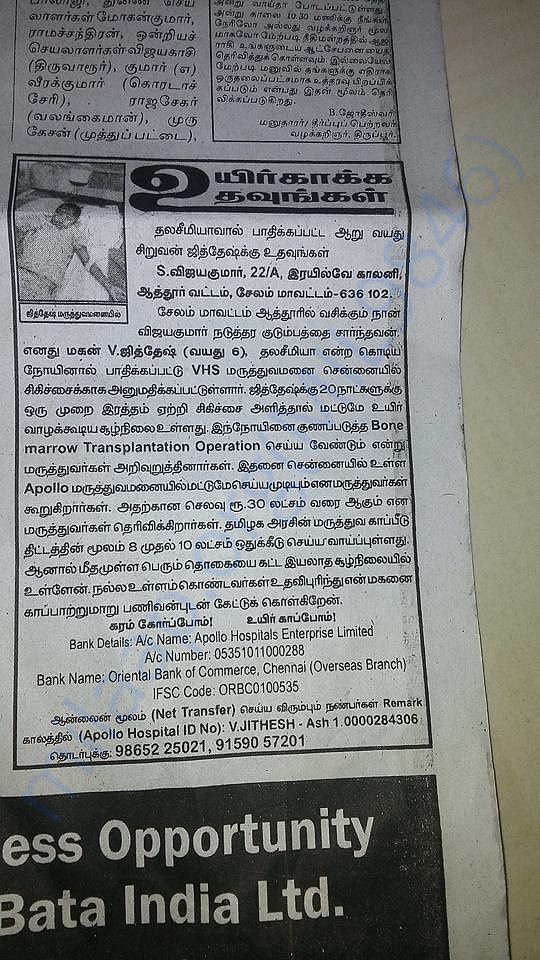 பாலாஜி, துணை செய
லாளர்கள் மோகன்குமார்,
ராமச்சந்திரன், ஒன்றியச்
செயலாளர்கள் விஜயகாசி
(திருவாரூர்), குமார் (எ)
வீரக்குமார் (கொரடாச்
சேரி), ராஜசேகர்
(வலங்கைமான்), முரு
கேசன் (முத்துப்பட்டை),
அன்று வாய்தா போடப்பட்டுள்ளது.
அன்று காலை 10.30 மணிக்கு நீங்கள்
நேரிலோ அல்லது வழக்கறிஞர் மூல
மாகவோ மேற்படி நீதிமன்றத்தில் ஆஜ
ராகி உங்களுடைய ஆட்சேபனையைத்
தெரிவித்துக் கொள்ளவும் இல்லையேல்
மேற்படி மனுவில் தங்களுக்கு எதிராக
ஒருதலைப்பட்சமாக உத்தரவு பிறப்பிக்
கப்படும் என்பது இதன் மூலம் தெரி
விக்கப்படுகிறது.
B.ஜோதீஸ்வரி
மனுதாரர்/ தீர்ப்புப் பெற்றவர்
வழக்கறிஞர், திருப்பூர்.
உயிர்காக்க
உதவுங்கள்
தலசீமியாவால் பாதிக்கப்பட்ட ஆறு வயது
சிறுவன் ஜித்தேஷ்க்கு உதவுங்கள்
S.விஜயகுமார், 22/A, இரயில்வே காலனி,
ஆத்தூர் வட்டம், சேலம் மாவட்டம்-636 102.
ஜித்தேஷ் மருத்துவமனையில்
சேலம் மாவட்டம் ஆத்தூரில் வசிக்கும் நான்
விஜயகுமார் நடுத்தர குடும்பத்தை சார்ந்தவன்.
எனது மகன் V.ஜித்தேஷ் (வயது 6), தலசீமியா என்ற கொடிய
நோயினால் பாதிக்கப்பட்டு VHS மருத்துவமனை சென்னையில்
சிகிச்சைக்காக அனுமதிக்கப்பட்டுள்ளார். ஜித்தேஷ்க்கு 20 நாட்களுக்கு
ஒரு முறை இரத்தம் ஏற்றி சிகிச்சை அளித்தால் மட்டுமே உயிர்
வாழக்கூடிய சூழ்நிலை உள்ளது. இந்நோயினை குணப்படுத்த Bone
marrow Transplantation Operation செய்ய வேண்டும் என்று
மருத்துவர்கள் அறிவுறுத்தினார்கள். இதனை சென்னையில் உள்ள
Apollo மருத்துவமனையில் மட்டுமே செய்ய முடியும் என மருத்துவர்கள்
கூறுகிறார்கள். அதற்கான செலவு ரூ.30 லட்சம் வரை ஆகும் என
மருத்துவர்கள் தெரிவிக்கிறார்கள். தமிழக அரசின் மருத்துவ காப்பீடு
திட்டத்தின் மூலம் 8 முதல் 10 லட்சம் ஒதுக்கீடு செய்ய வாய்ப்புள்ளது.
ஆனால் மீதமுள்ள பெரும் தொகையை கட்ட இயலாத சூழ்நிலையில்
உள்ளேன். நல்ல உள்ளம் கொண்டவர்கள் உதவிபுரிந்து என் மகனை
காப்பாற்றுமாறு பணிவன்புடன் கேட்டுக் கொள்கிறேன்.
கரம் கோர்ப்போம்! உயிர் காப்போம்!
Bank Details: A/c Name: Apollo Hospitals Enterprise Limited
A/c Number: 05351011000288
Bank Name: Oriental Bank of Commerce, Chennai (Overseas Branch)
IFSC Code: ORBC0100535
ஆன்லைன் மூலம் (Net Transfer) செய்ய விரும்பும் நண்பர்கள் Remark
காலத்தில் (Apollo Hospital ID No): V.JITHESH - Ash 1.0000284306
தொடர்புக்கு: 98652 25021, 91590 57201
ess Opportunity
Bata India Ltd.